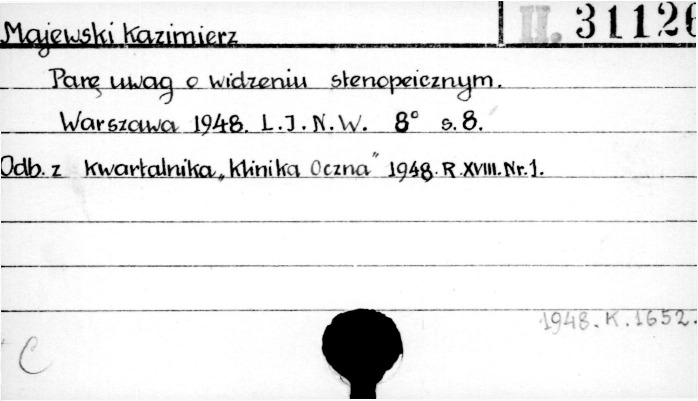 Majewski Kazimierz
II. 31126
Parę uwag o widzeniu stenopeicznym.
Warszawa 1948. L.I.N.W. 8° s. 8.
Odb. z kwartalnika „Klinika Oczna" 1948. R. XVIII. Nr. 1.
1948. K. 1652.
C